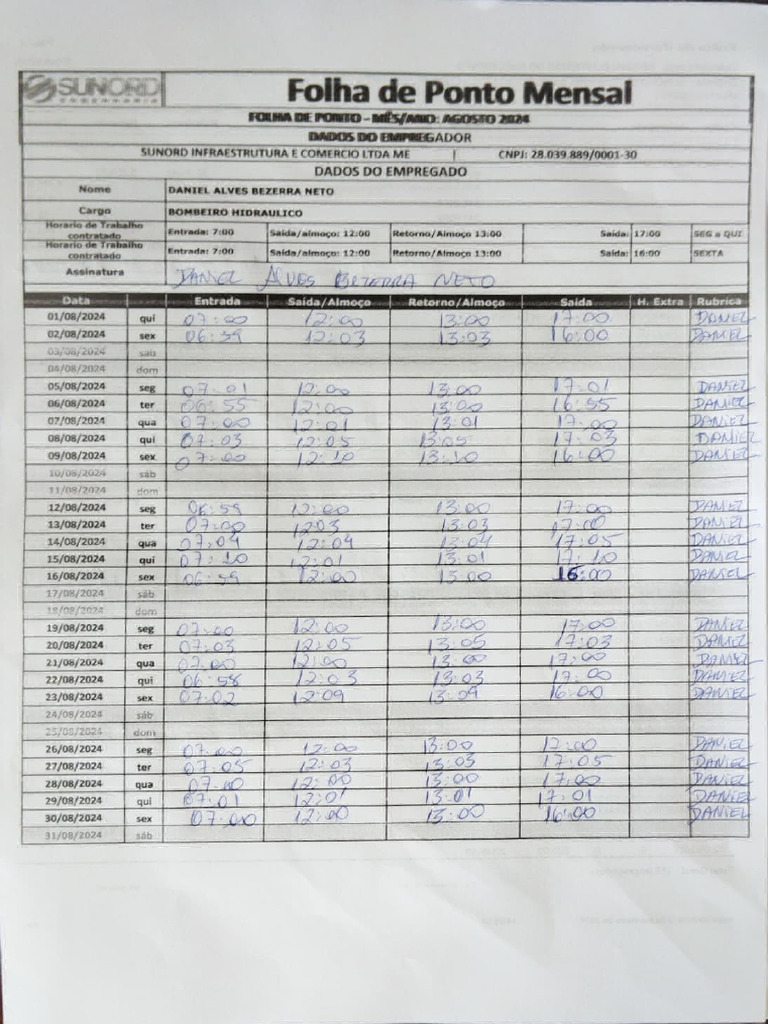 SUNORD
ENGENHARIA
Folha de Ponto Mensal
FOLHA DE PONTO - MÊS/ANO: AGOSTO 2024
DADOS DO EMPREGADOR
SUNORD INFRAESTRUTURA E COMERCIO LTDA ME | CNPJ: 28.039.889/0001-30
DADOS DO EMPREGADO
Nome DANIEL ALVES BEZERRA NETO
Cargo BOMBEIRO HIDRAULICO
Horario de Trabalho contratado Entrada: 7:00 Saída/almoço: 12:00 Retorno/Almoço 13:00 Saída: 17:00 SEG a QUI
Horario de Trabalho contratado Entrada: 7:00 Saída/almoço: 12:00 Retorno/Almoço 13:00 Saída: 16:00 SEXTA
Assinatura DANIEL ALVES BEZERRA NETO
Data Entrada Saída/Almoço Retorno/Almoço Saída H. Extra Rubrica
01/08/2024 qui 07:00 12:00 13:00 17:00 DANIEL
02/08/2024 sex 06:59 12:03 13:03 16:00 DANIEL
03/08/2024 sáb
04/08/2024 dom
05/08/2024 seg 07:01 12:00 13:00 17:01 DANIEL
06/08/2024 ter 06:55 12:00 13:00 16:55 DANIEL
07/08/2024 qua 07:00 12:01 13:01 17:00 DANIEL
08/08/2024 qui 07:03 12:05 13:05 17:03 DANIEL
09/08/2024 sex 07:00 12:10 13:10 16:00 DANIEL
10/08/2024 sáb
11/08/2024 dom
12/08/2024 seg 06:59 12:00 13:00 17:00 DANIEL
13/08/2024 ter 07:00 12:03 13:03 17:00 DANIEL
14/08/2024 qua 07:04 12:04 13:04 17:05 DANIEL
15/08/2024 qui 07:10 12:01 13:01 17:10 DANIEL
16/08/2024 sex 06:59 12:00 13:00 16:00 DANIEL
17/08/2024 sáb
18/08/2024 dom
19/08/2024 seg 07:00 12:00 13:00 17:00 DANIEL
20/08/2024 ter 07:03 12:05 13:05 17:03 DANIEL
21/08/2024 qua 07:00 12:00 13:00 17:00 DANIEL
22/08/2024 qui 06:58 12:03 13:03 17:00 DANIEL
23/08/2024 sex 07:02 12:09 13:09 16:00 DANIEL
24/08/2024 sáb
25/08/2024 dom
26/08/2024 seg 07:00 12:00 13:00 17:00 DANIEL
27/08/2024 ter 07:05 12:03 13:03 17:05 DANIEL
28/08/2024 qua 07:00 12:00 13:00 17:00 DANIEL
29/08/2024 qui 07:01 12:01 13:01 17:01 DANIEL
30/08/2024 sex 07:00 12:00 13:00 16:00 DANIEL
31/08/2024 sáb